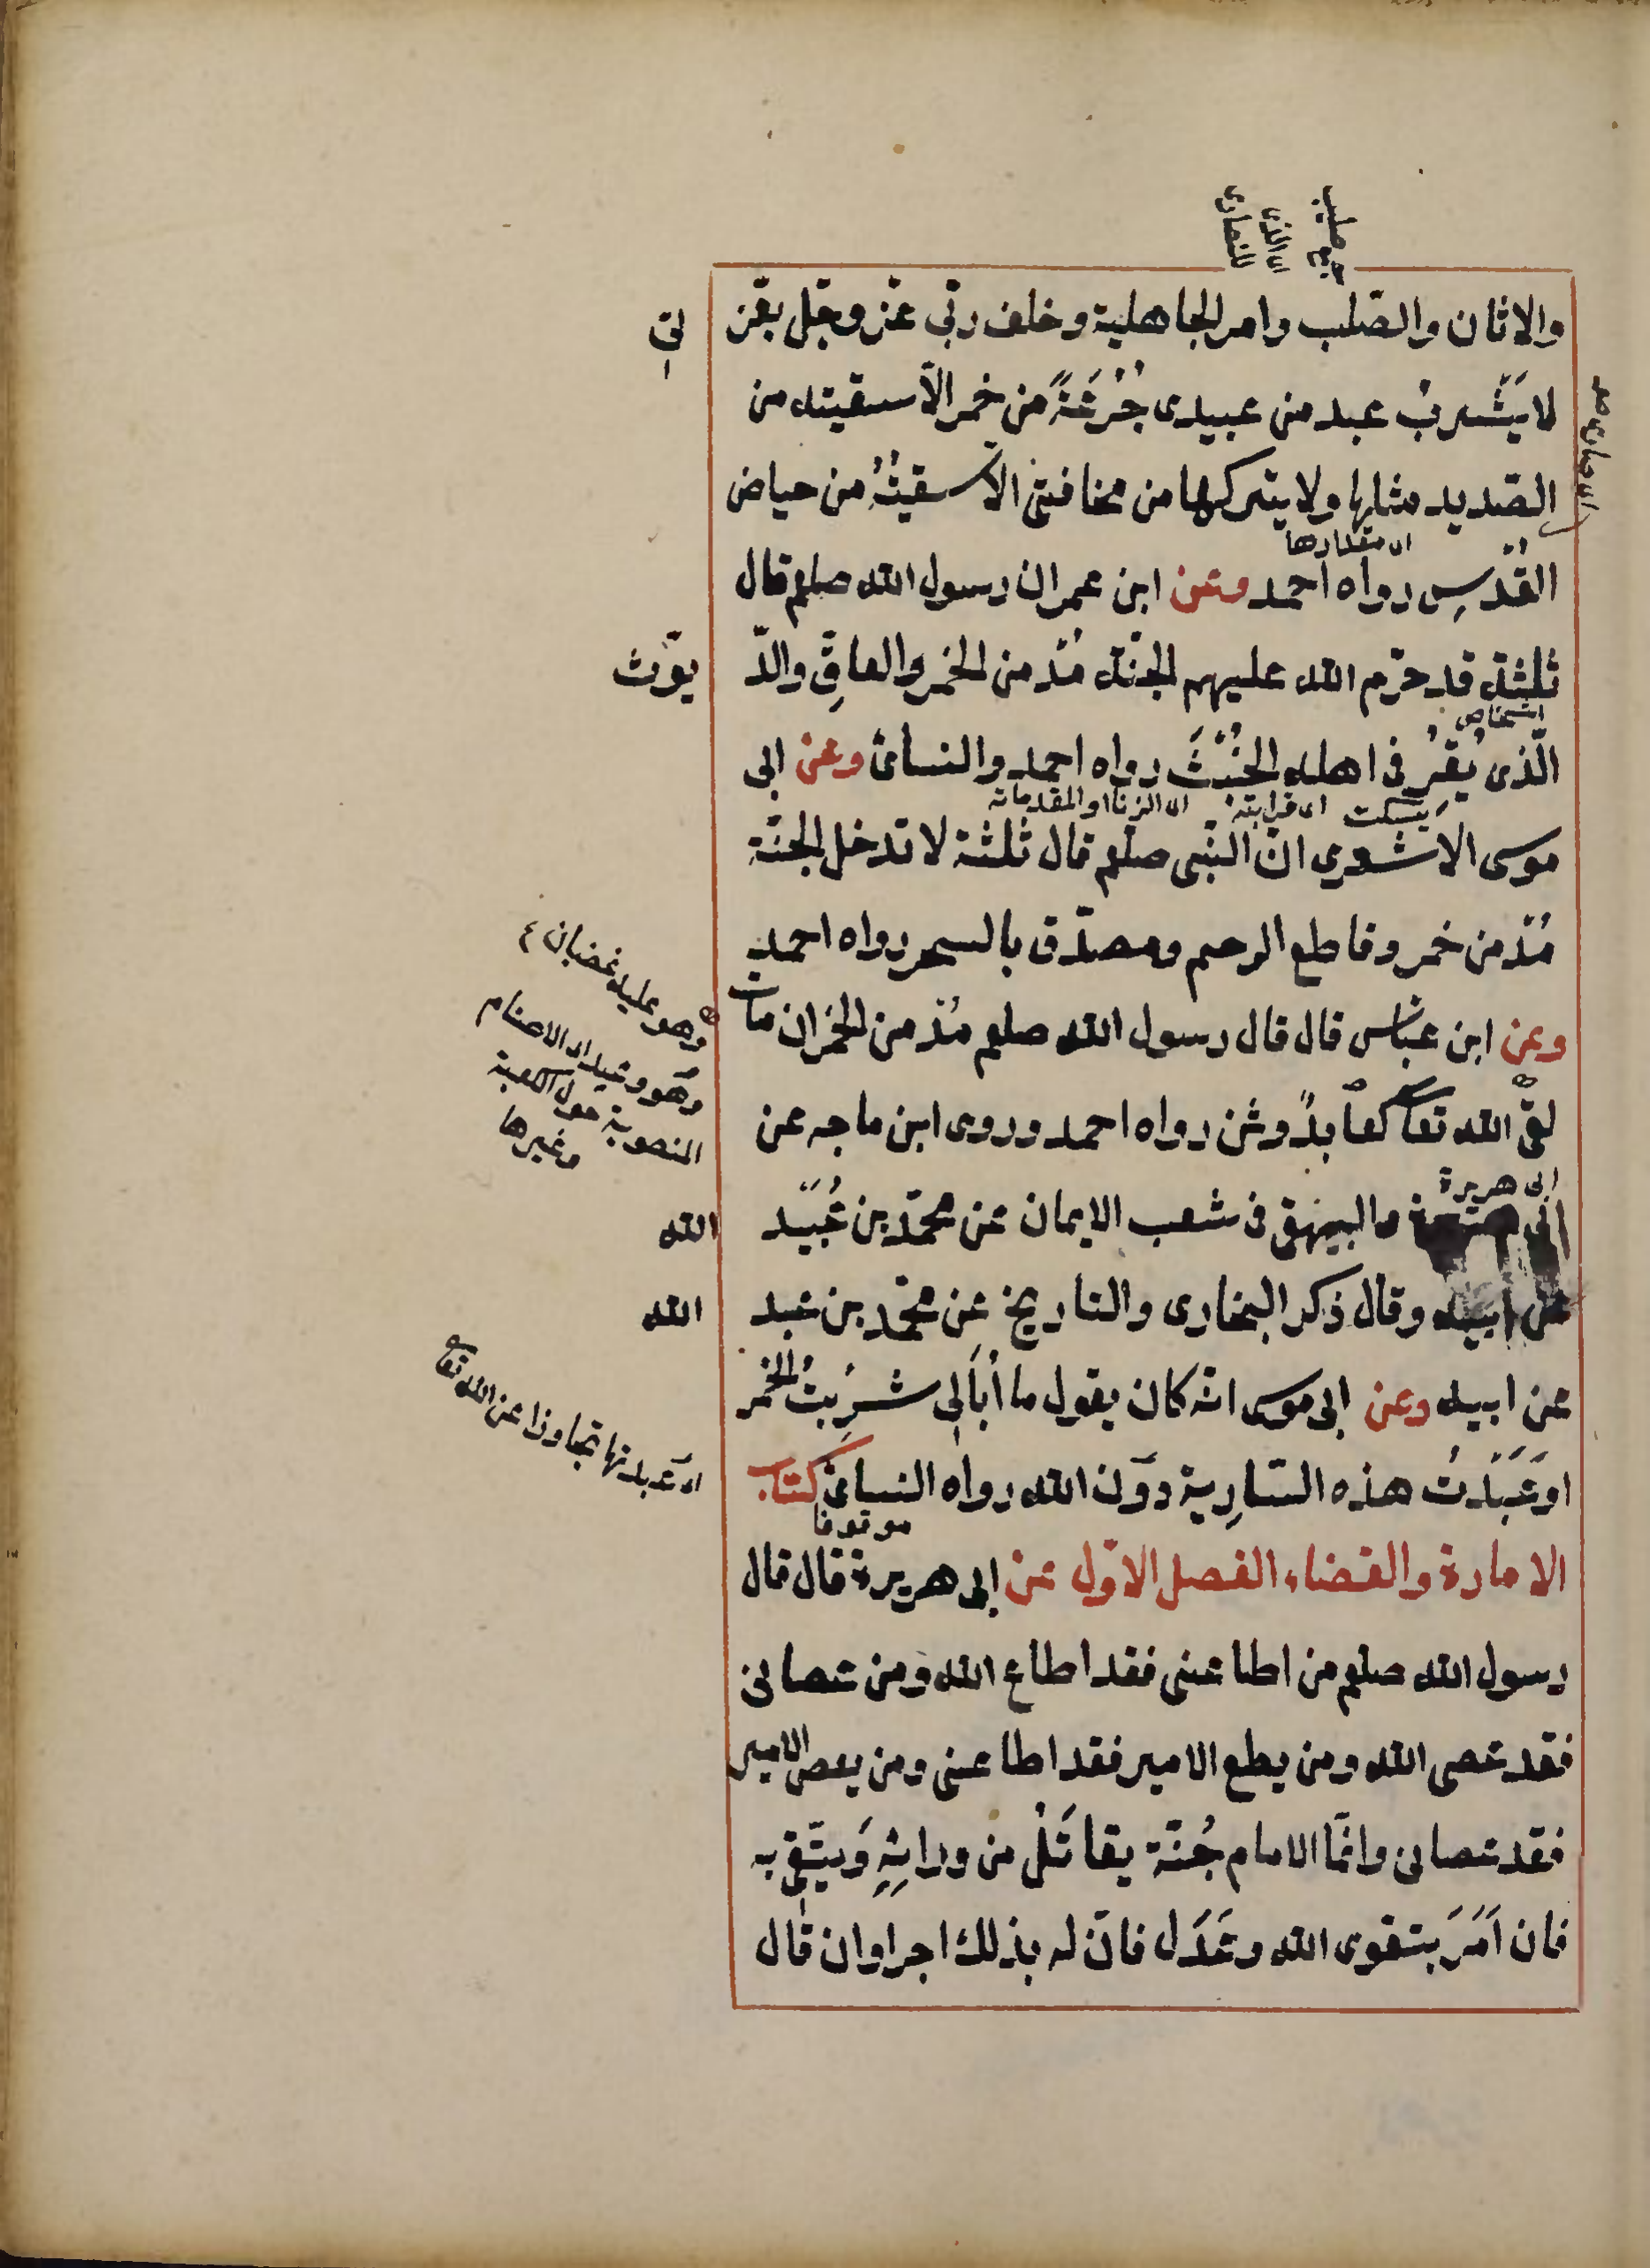 جمع صليب
اى الذى
للنصارى
والاثان والصّلب وامر الجاهلية وخلف ربّى عزّ وجّل بعّز
تى
لا يَشْرب عبد من عبيدى جُرْعَةً من خمر الّا سقيته من
الصّديد مثلها ولا يتركها من مخافتى الّا سقيتُهُ من حياض
اى مقدارها
القُدْسِ رواه احمد وعن ابن عمر ان رسول الله صلعم قال
ثلثة قد حرّم الله عليهم الجنّة مُدْمن الخمر والعاقّ والدّ
يوّث
اشخاص
الّذى يُقِرُ فى اهله الخُبْثَ رواه احمد والنسائى وعن ابى
يسكت اى قرابته اى الزنا او المقدماته
موسى الاشعري انّ النّبى صلعم قال ثلثة لا تدخل الجنّة
مُدْمن خمر وقاطع الرحم ومصدّق بالسحر رواه احمد
وعن ابن عبّاس قال قال رسول الله صلعم مُدْمن الخمر ان مات
وهو عليه غضبان ٤
لقىَ الله تعا كعابدِ وثن رواه احمد وروى ابن ماجه عن
وهو وعيد اى الاصنام
المنصوبة حول الكعبة
وغيرها
ابى هريرة
ابى هريرة والبيهقى فى شعب الايمان عن محمّد بن عُبَيْد
الله
عن ابيه وقال ذكر البخارى والتاريخ عن محمّد بن عبد
الله
عن ابيه وعن ابى موسى انّه كان يقول ما أبَالِى شرِبتُ الخمر
او عَبَدْتُ هذه السّارِية دوَن الله رواه النسائى كتاب
اى عَبدتها تجاوزا عن الله تعا
موقوفا
الامارة والقضاء الفصل الاوّل عن ابى هريرة قال قال
رسول الله صلعم من اطاعنى فقد اطاع الله ومن عصانى
فقد عصى الله ومن يطع الامير فقد اطاعنى ومن يعص الامير
فقد عصانى وانّما الامام جُنّة يقاتَلُ من ورائِهِ وَيتّقى به
فان اَمَرَ بتقوى الله وعَدَل فانّ له بذلك اجرا وان قال